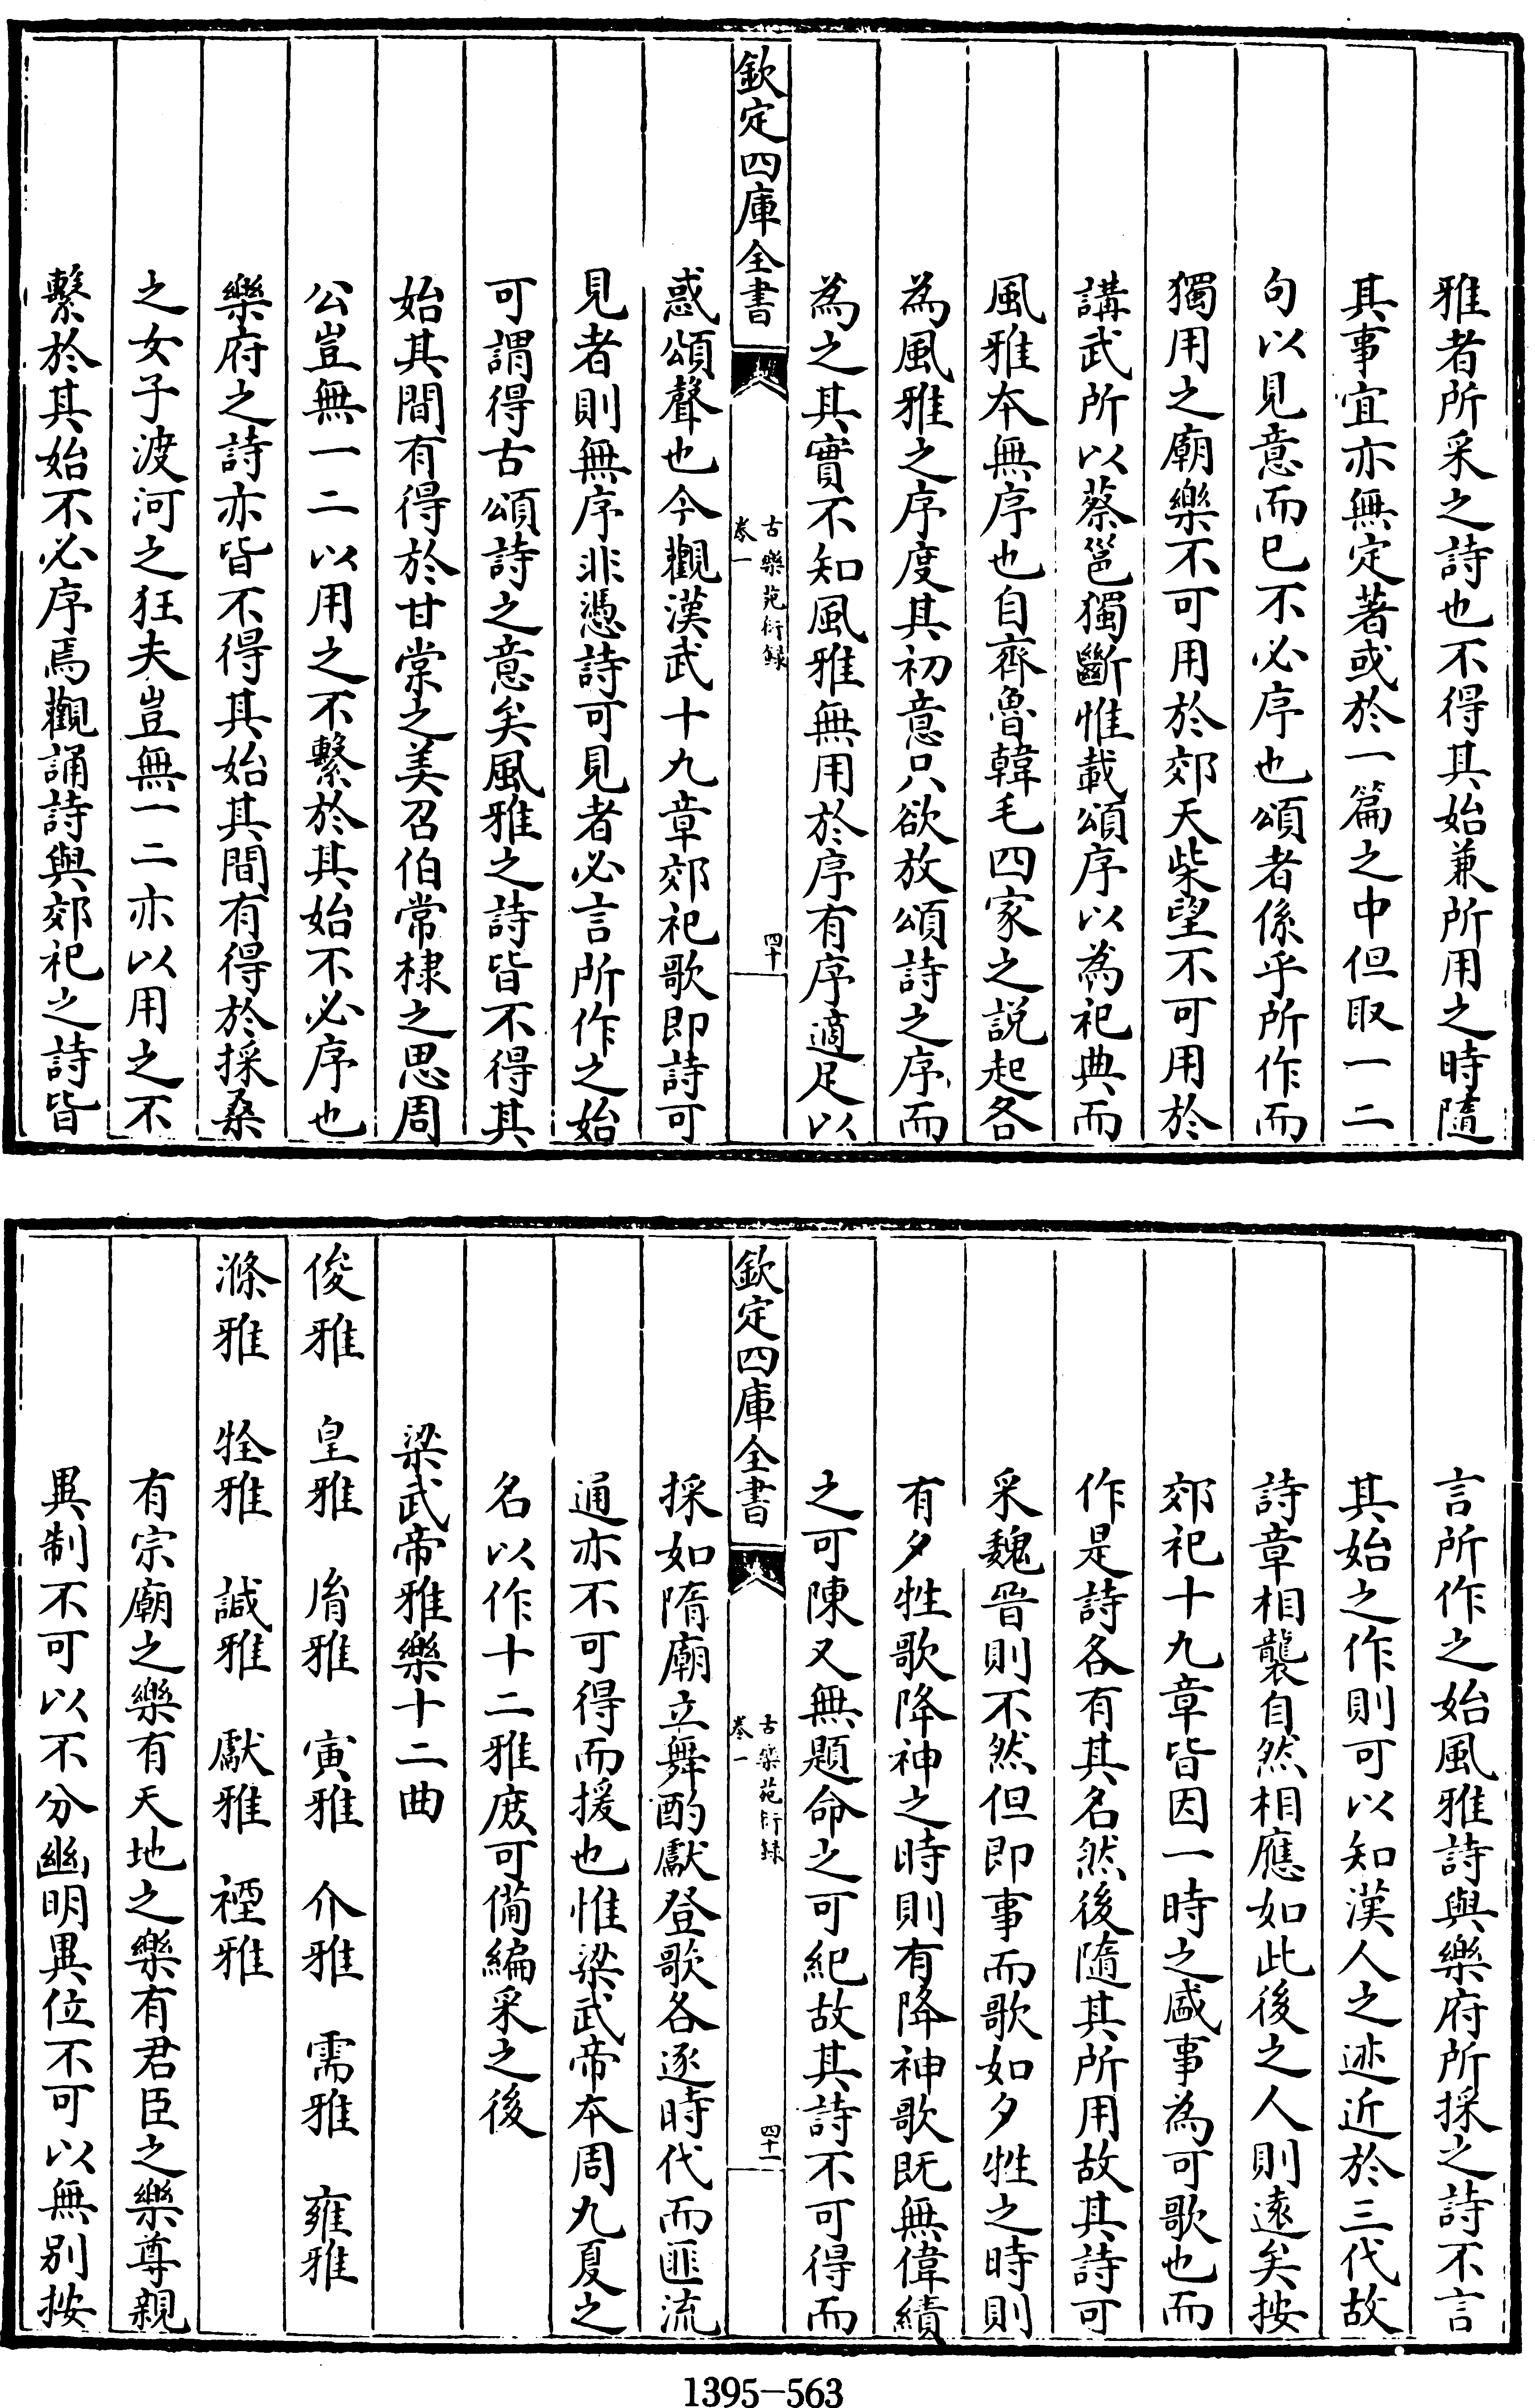 雅者所采之詩也不得其始兼所用之時隨
其事宜亦無定著或於一篇之中但取一二
句以見意而已不必序也頌者係乎所作而
獨用之廟樂不可用於郊天柴望不可用於
講武所以蔡邕獨斷惟載頌序以為祀典而
風雅本無序也自齊魯韓毛四家之說起各
為風雅之序度其初意只欲放頌詩之序而
為之其實不知風雅無用於序有序適足以
欽定四庫全書
古樂苑衍録
卷一
四十
惑頌聲也今觀漢武十九章郊祀歌即詩可
見者則無序非憑詩可見者必言所作之始
可謂得古頌詩之意矣風雅之詩皆不得其
始其間有得於甘棠之美召伯常棣之思周
公豈無一二以用之不繫於其始不必序也
樂府之詩亦皆不得其始其間有得於採桑
之女子渡河之狂夫豈無一二亦以用之不
繫於其始不必序焉觀誦詩與郊祀之詩皆
言所作之始風雅詩與樂府所採之詩不言
其始之作則可以知漢人之迹近於三代故
詩章相襲自然相應如此後之人則遠矣按
郊祀十九章皆因一時之感事為可歌也而
作是詩各有其名然後隨其所用故其詩可
采魏晉則不然但即事而歌如夕牲之時則
有夕牲歌降神之時則有降神歌既無偉績
之可陳又無題命之可紀故其詩不可得而
欽定四庫全書
古樂苑衍録
卷一
四十一
採如隋廟立舞酌獻登歌各逐時代而匪流
通亦不可得而援也惟梁武帝本周九夏之
名以作十二雅庶可備編采之後
梁武帝雅樂十二曲
俊雅 皇雅 胤雅 寅雅 介雅 需雅 雍雅
滌雅 牷雅 諴雅 獻雅 禋雅
有宗廟之樂有天地之樂有君臣之樂尊親
異制不可以不分幽明異位不可以無別按
1395-563